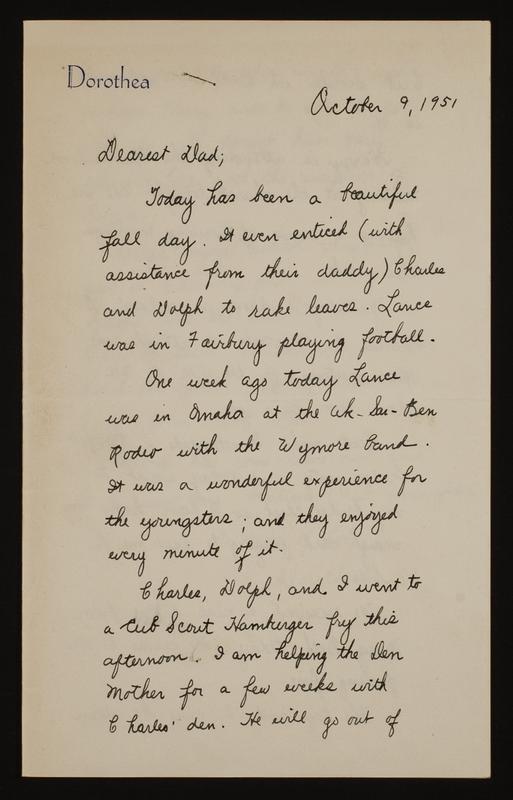 Dorothea
October 9, 1951
Dearest Dad;
Today has been a beautiful
fall day. It even enticed (with
assistance from their daddy) Charles
and Dolph to rake leaves. Lance
was in Fairbury playing football.
One week ago today Lance
was in Omaha at the Ak-Sar-Ben
Rodeo with the Wymore band.
It was a wonderful experience for
the youngsters; and they enjoyed
every minute of it.
Charles, Dolph, and I went to
a Cub Scout Hamburger fry this
afternoon. I am helping the Den
Mother for a few weeks with
Charles' den. He will go out of